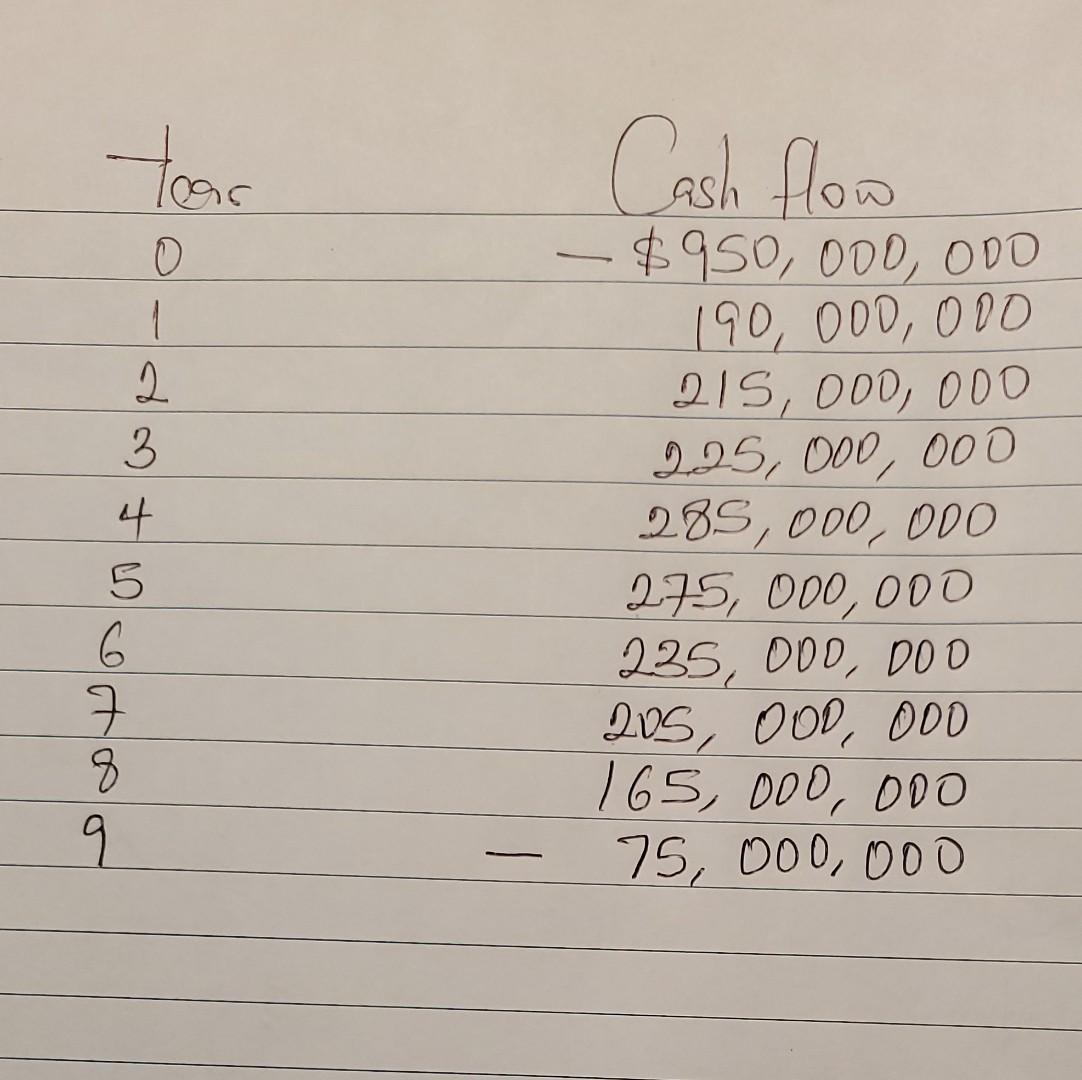 Year Cash flow
0 - $950,000,000
1 190,000,000
2 215,000,000
3 225,000,000
4 285,000,000
5 275,000,000
6 235,000,000
7 205,000,000
8 165,000,000
9 - 75,000,000